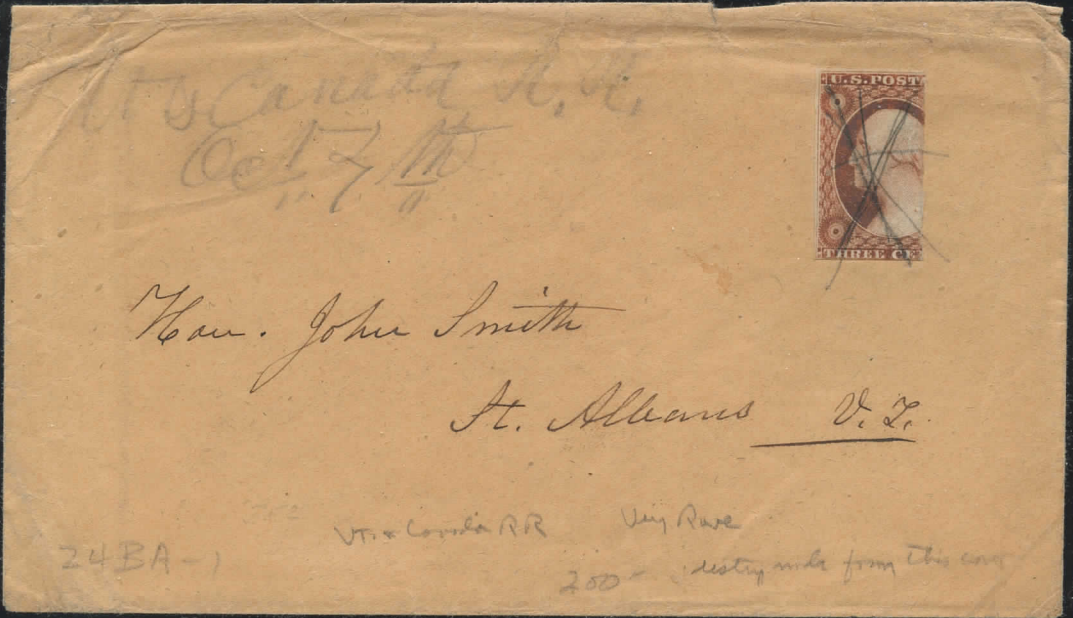 Vt & Canada R. R.
Oct 7th
U.S. POST
THREE CE
Hon. John Smith
St. Albans V.T.
VT. & Canada RR Very Rare
24BA-1
200- listing made from this cover